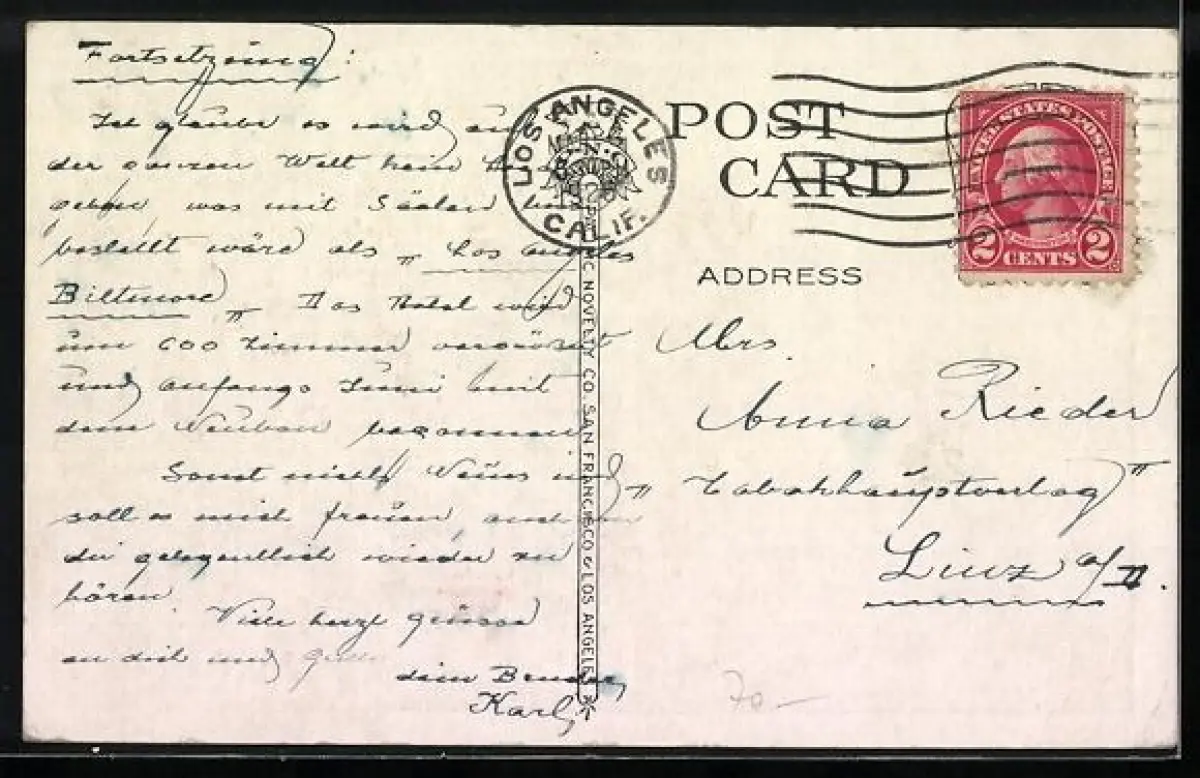 Fortsetzung:
Ich glaube es wird auf
der ganzen Welt kein
geben was mit Säälen
bestellt wäre als „Los Angeles
Biltmore„ Das Hotel wird
um 600 Zimmer vergrössert
und anfangs Juni mit
dem Neubau begonnen
Sonst nichts Neues und
soll es mich freuen, auch
dir gelegentlich wieder zu
hören.
Viele herzl grüsse
an dich und
dein Bruder
Karl,
LOS ANGELES
CALIF.
POST
CARD
UNITED STATES POSTAGE
2 CENTS 2
ADDRESS
Mrs.
Anna Rieder
„Tabakhauptverlag"
Linz a/D.
C. NOVELTY CO. SAN FRANCISCO & LOS ANGELES
70-